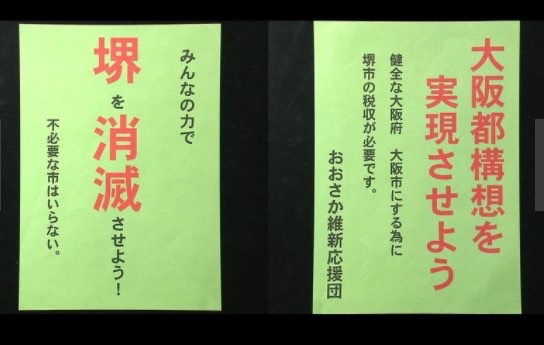 みんなの力で
堺を消滅させよう!
不必要な市はいらない。
大阪都構想を
実現させよう
健全な大阪府 大阪市にする為に
堺市の税収が必要です。
おおさか維新応援団